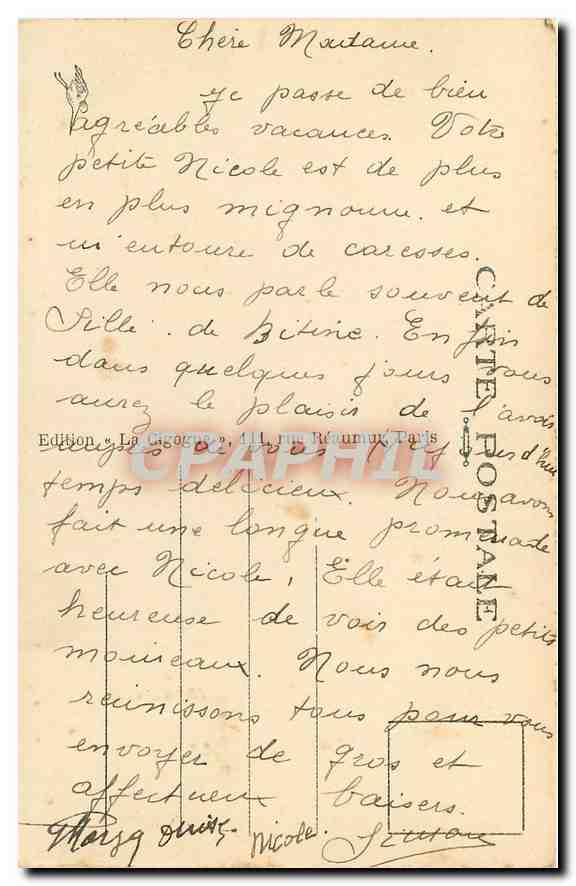 Chère Madame.
Je passe de bien
agréables vacances. Votre
petite Nicole est de plus
en plus mignonne. et
m'entoure de caresses.
Elle nous parle souvent de
de
dans quelques jours vous
aurez le plaisir de l'avoir
Edition « La Cigogne », 111, rue Réaumur, Paris
CARTE POSTALE
CPAPHIL
auprès de vous
temps délicieux. Nous avons
fait une longue promenade
avec Nicole, Elle était
heureuse de voir des petits
moineaux. Nous nous
réunissons tous pour vous
envoyer de gros et
affectueux baisers.
Nicole. Simone